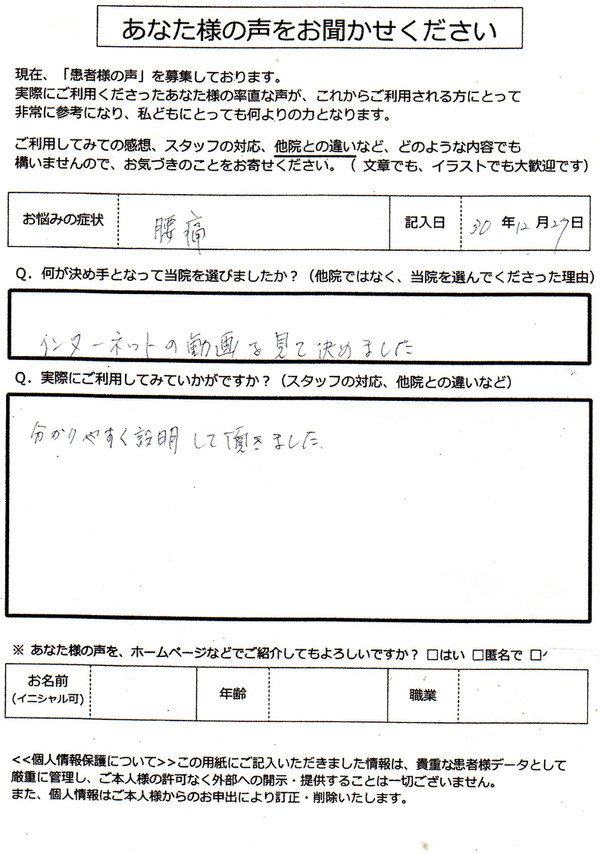 あなた様の声をお聞かせください
現在、「患者様の声」を募集しております。
実際にご利用くださったあなた様の率直な声が、これからご利用される方にとって
非常に参考になり、私どもにとっても何よりの力となります。
ご利用してみての感想、スタッフの対応、他院との違いなど、どのような内容でも
構いませんので、お気づきのことをお寄せください。（ 文章でも、イラストでも大歓迎です）
お悩みの症状 腰痛 記入日 30 年 12 月 27 日
Q．何が決め手となって当院を選びましたか？（他院ではなく、当院を選んでくださった理由）
インターネットの動画を見て決めました
Q．実際にご利用してみていかがですか？（スタッフの対応、他院との違いなど）
分かりやすく説明して頂きました
※ あなた様の声を、ホームページなどでご紹介してもよろしいですか？ □はい □匿名で □
お名前 年齢 職業
(イニシャル可)
<<個人情報保護について>>この用紙にご記入いただきました情報は、貴重な患者様データとして
厳重に管理し、ご本人様の許可なく外部への開示・提供することは一切ございません。
また、個人情報はご本人様からのお申出により訂正・削除いたします。